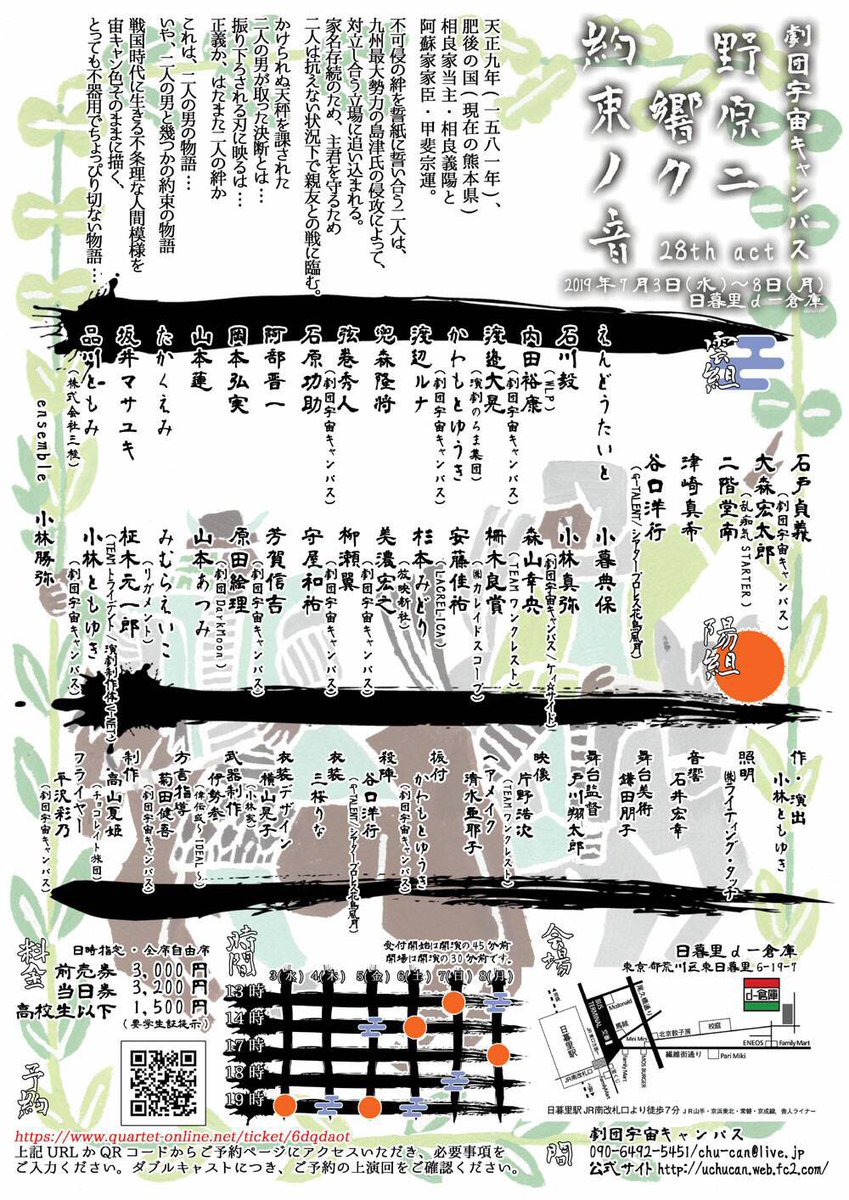 劇団宇宙キャンバス
野原ニ
響ク
約束ノ音
28th act
2019年7月3日(水)〜8日(月)
日暮里d-倉庫
天正九年(一五八一年)、
肥後の国(現在の熊本県)
相良家当主・相良義陽と
阿蘇家家臣・甲斐宗運。
不可侵の絆を誓紙に誓い合う二人は、
九州最大勢力の島津氏の侵攻によって、
対立し合う立場に追い込まれる。
家名存続のため、主君を守るため
二人は抗えない状況下で親友との戦に臨む。
かけられぬ天秤を課された
二人の男が取った決断とは…
振り下ろされる刃に映るは…
正義か、はたまた二人の絆か
これは、二人の男の物語…
いや、二人の男と幾つかの約束の物語
戦国時代に生きる不条理な人間模様を
宙キャン色そのままに描く、
とっても不器用でちょっぴり切ない物語…
雲組
えんどうたいと
石川毅
(WIP)
内田裕康
(劇団宇宙キャンバス)
渡邉大晃
(演劇のらま集団)
かわもとゆうき
(劇団宇宙キャンバス)
渡辺ルナ
兜森隆将
弦巻秀人
(劇団宇宙キャンバス)
石原功助
阿部晋一
岡本弘実
山本蓮
たかくえみ
坂井マサユキ
品川ともみ
(株式会社三枝)
石戸貞義
(劇団宇宙キャンバス)
大森宏太郎
(乱痴気STARTER)
二階堂南
津崎真希
谷口洋行
(G-TALENT/シアタープロレス花鳥風月)
陽組
小暮典保
小林真弥
(劇団宇宙キャンバス/ケィ・サイド)
森山幸央
(TEAMワンクレスト)
柵木良賞
(㈱カレイドスコープ)
安藤佳祐
(LACRELICA)
杉本みどり
(放映新社)
美濃宏之
(劇団宇宙キャンバス)
柳瀬翼
(劇団宇宙キャンバス)
守屋和祐
芳賀信吉
(劇団宇宙キャンバス)
原田絵理
(劇団DarkMoon)
山本あつみ
みむらえいこ
(リガメント)
柾木元一郎
(TEAMトライデント/演劇制作体)
小林ともゆき
(劇団宇宙キャンバス)
ensemble
小林勝弥
作・演出
小林ともゆき
照明
㈱ライティング・タッチ
音響
石井宏幸
舞台美術
鎌田朋子
舞台監督
戸川翔太郎
映像
片野浩次
(TEAMワンクレスト)
ヘアメイク
清水亜耶子
振付
かわもとゆうき
殺陣
谷口洋行
(G-TALENT/シアタープロレス花鳥風月)
衣装
三桜りな
衣装デザイン
横山晃子
(小林家)
武器制作
伊勢参
(俺伝成〜IDEAL〜)
方言指導
菊田健吾
(劇団宇宙キャンバス)
制作
高山夏姫
(チョコレイト旅団)
フライヤー
平沢彩乃
(劇団宇宙キャンバス)
料金
日時指定・全席自由席
前売券 3,000円
当日券 3,200円
高校生以下 1,500円
(要学生証提示)
予約
時間
受付開始は開演の45分前
開場は開演の30分前です。
3(水) 4(木) 5(金) 6(土) 7(日) 8(月)
13時
14時
17時
18時
19時
会場
日暮里d-倉庫
東京都荒川区東日暮里6-19-7
d-倉庫
日暮里駅
BUS TERMINAL
交番
JR南改札口
尾久橋通り
Mcdonald
馬賊
Mini Mini
Family Mart
MOS BURGER
北京餃子房
校庭
繊維街通り
Pari Miki
ENEOS
Family Mart
日暮里駅JR南改札口より徒歩7分 JR山手・京浜東北・常磐・京成線 舎人ライナー
https://www.quartet-online.net/ticket/6dqdaot
上記URLかQRコードからご予約ページにアクセスいただき、必要事項を
ご入力ください。ダブルキャストにつき、ご予約の上演回をご確認ください。
問
劇団宇宙キャンバス
090-6492-5451/chu-can@live.jp
公式サイト http://uchucan.web.fc2.com/